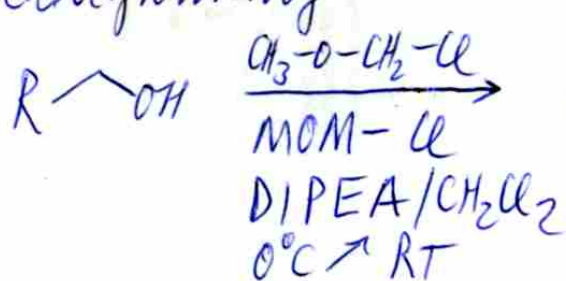 R OH CH3-O-CH2-Cl
MOM-Cl
DIPEA/CH2Cl2
0°C ↗ RT